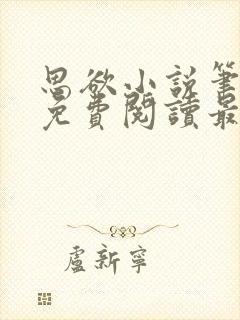 思欲小說筆
免費閱讀最
盧新寧